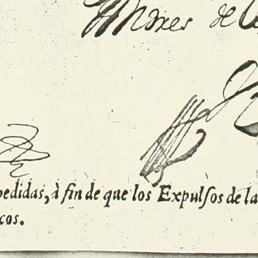 Andres de
pedidas, à fin de que los Expulſos de la
cos.